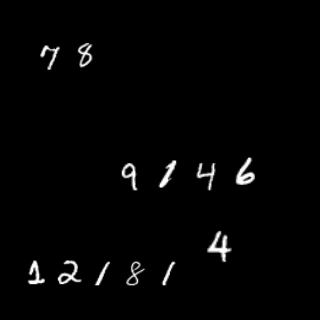 78
9146
4
12181